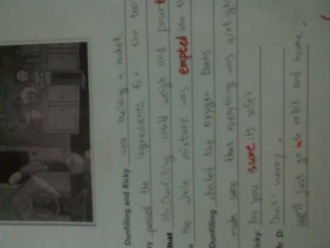 Dunfiling and Ricky were building a rocket.
passed the ingredients for the
Mr Dunfiling could weigh and pour
the whole mixture was emptied into
Dunfiling checked the oxygen tanks
made sure that everything was airtight
Are you sure its safe?
D: Don't worry.
We'll just go into orbit and home.